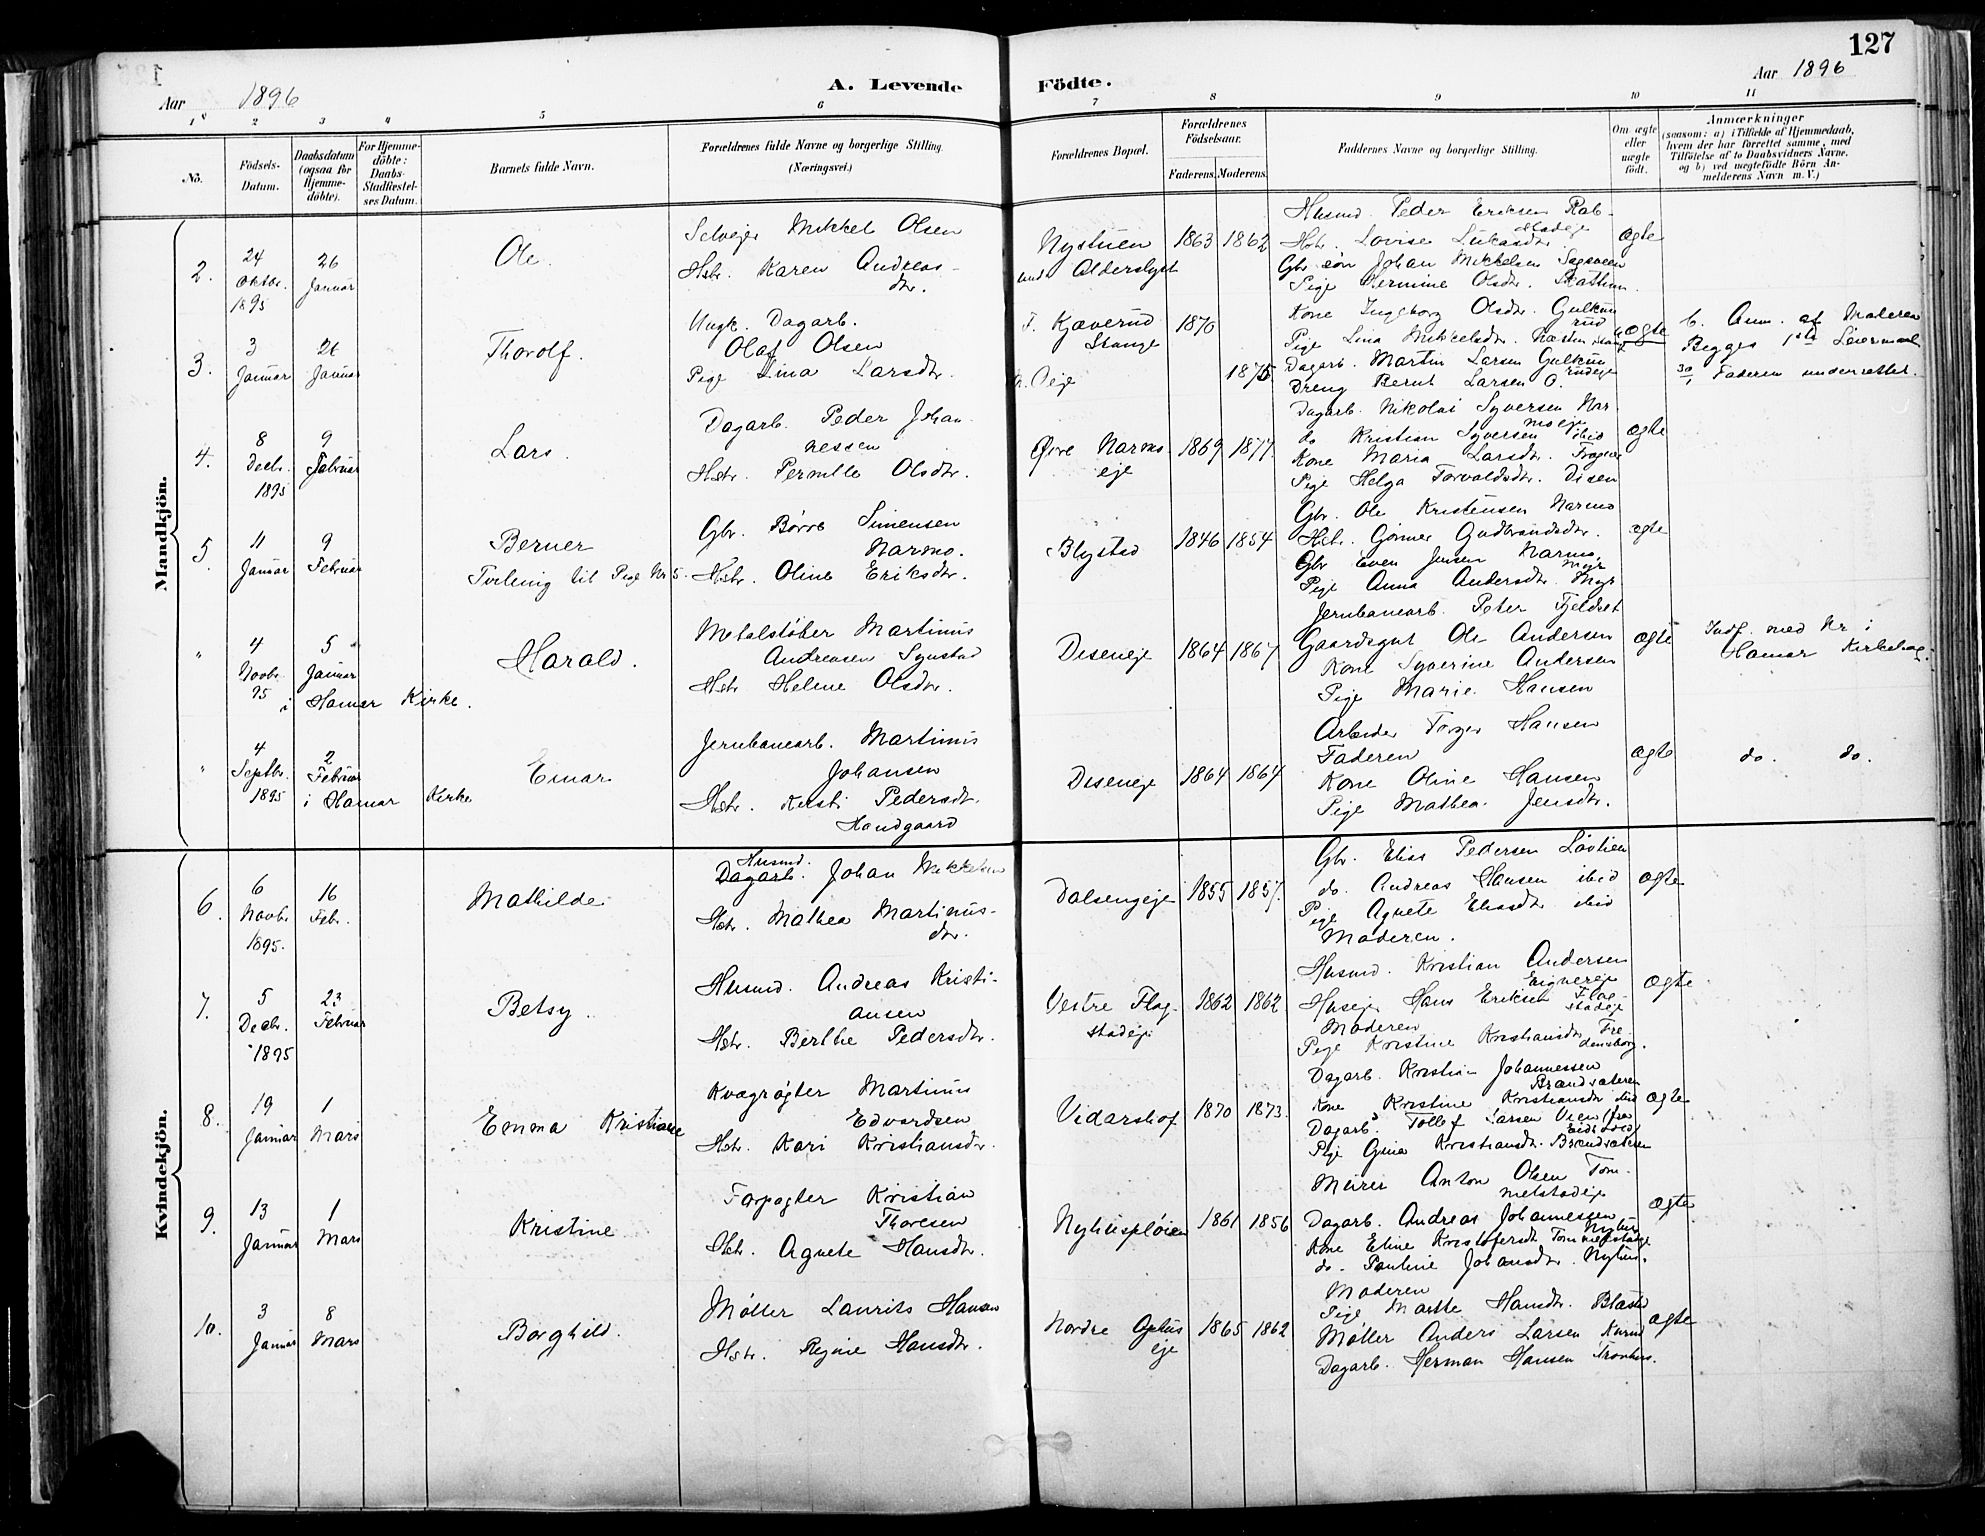 127
Aar 1896
A. Levende Födte.
Aar 1896
1 2 3 4 5 6 7 8 9 10 11
No.
Födsels-Datum.
Daabsdatum (ogsaa for Hjemme-döbte).
For Hjemme-döbte: Daabs-Stadfæstel-ses Datum.
Barnets fulde Navn.
Forældrenes fulde Navne og borgerlige Stilling. (Næringsvei.)
Forældrenes Bopæl.
Forældrenes Födselsaar.
Faderens. Moderens.
Faddernes Navne og borgerlige Stilling.
Om ægte eller uægte födt.
Anmærkninger
(saasom: a) i Tilfælde af Hjemmedaab, hvem der har forrettet samme, med Tilföielse af to Daabsvidners Navne, og b) ved uægtefödte Börn An-melderens Navn m. V.)
Mandkjön.
2.
24 Oktbr. 1895
26 Januar
Ole.
Selveier Mikkel Olsen
Hstr. Karen Andreas-
dtr.
Nystuen
und. Alderslyst
1863 1862
Husmd. Peder Eriksen Rab-
stadeje
Hstr. Lovise Lukasdtr.
Gbr. søn Johan Mikkelsen Sagveen
Pige Hermine Olsdtr.
ægte
3.
3 Januar
26 Januar
Thorolf.
Ungk. Dagarb.
Olaf Olsen
Pige Lina Larsdtr.
F. Kjæverud
Stange
M. Deje
1870
1875
Kone Ingeborg Olsdtr. Gulkun
rud
Pige Lina Mikkelsdtr.
Dagarb. Martin Larsen Gulkun
rudeje
Dreng Bernt Larsen O.
uægte
b. Anm. af Moderen
Begges 1ste Leiermaal
30/1 Faderen underrettet.
4.
8 Decbr. 1895
9 Februar
Lars
Dagarb. Peder Johan-
nessen
Hstr. Pernille Olsdtr.
Øvre Narmo
eje
1869 1877
Dagarb. Nikolai Syversen Nar
moeje
do Kristian Syversen ibid
Kone Maria Larsdtr.
Pige Helga Torvaldsdtr. Disen
ægte
5.
11 Januar
9 Februar
Berner
Tvilling til Pige Nr 5.
Gbr. Børre Simensen
Narmo.
Hstr. Oline Eriksdtr.
Blystad
1846 1854
Gbr. Ole Kristensen Narmo
Hstr. Gunner Gudbrandsdtr.
Gbr Even Jensen Narmo,
Myr
Pige Anna Andersdtr. Myr
ægte
"
4 Novbr. 95
5 Januar
i Hamar Kirke.
Harald.
Metalstøber Martinus
Andreasen Synstad
Hstr Helene Olsdtr.
Diseneje
1864 1867
Jernbanearb. Peter Fjeldset
Gaardsgut Ole Andersen
Kone Syverine Andersen
Pige Marie Hansen
ægte
Indf. med Nr i
Hamar Kirkebog.
"
4 Septbr. 1895
2 Februar
i Hamar Kirke
Einar
Jernbanearb. Martinus
Johansen
Hstr. Kersti Pedersdtr.
Handgaard
Diseneje
1864 1864
Arbeider Torger Hansen
Faderen
Kone Oline Hansen
Pige Mathea Jensdtr.
ægte
do. do.
Kvindekjön.
6.
6 Novbr. 1895.
16 Febr.
Mathilde
Husmd.
Dagarb. Johan Mikkelsen
Hstr. Mathea Martinus-
dtr.
Dalsengeje
1855 1857.
Gbr. Elias Pedersen Løvlien
do. Andreas Hansen ibid
Pige Agnete Eliasdtr ibid
Moderen.
ægte
7.
5 Decbr. 1895
23 Februar
Betsy.
Husmd. Andreas Kristi-
ansen
Hstr. Berthe Pedersdtr.
Vestre Flag-
stadeje
1862 1862
Husmd. Kristian Andersen
Husejer Hans Eriksen Flag-
stadeje
Moderen
Pige Kristine Kristiansdtr Fre-
densborg.
ægte
8.
19 Januar
1 Mars
Emma Kristiane
Kvægrøgter Martinus
Edvardsen
Hstr. Kari Kristiansdtr.
Vidarshof
1870 1873.
Dagarb. Kristian Johannessen
Brændsæteren
Kone Kristine Kristiansdtr ibid
Dagarb. Tollef Larsen Vien (fra
Eidsvold)
Pige Gina Kristiansdtr. Brændsæteren
ægte
9.
13 Januar
1 Mars
Kristine
Forpagter Kristian
Thoresen
Hstr. Agnete Hansdtr.
Nyhuspløien
1861 1856
Meirer Anton Olsen Tom-
melstadeje
Dagarb. Andreas Johannessen
Nyhus
Kone Eline Kristofersdtr Tommelstadeje
do. Pauline Johansdtr. Nyhus.
ægte
10.
3 Januar
8 Mars
Borghild.
Møller Laurits Hansen
Hstr. Regine Hansdtr.
Nordre Ophus
eje
1865 1862
Moderen
Pige Marthe Hansdtr. Blæstad
Møller Anders Larsen Kurud
Dagarb. Herman Hansen Tronhus.
ægte